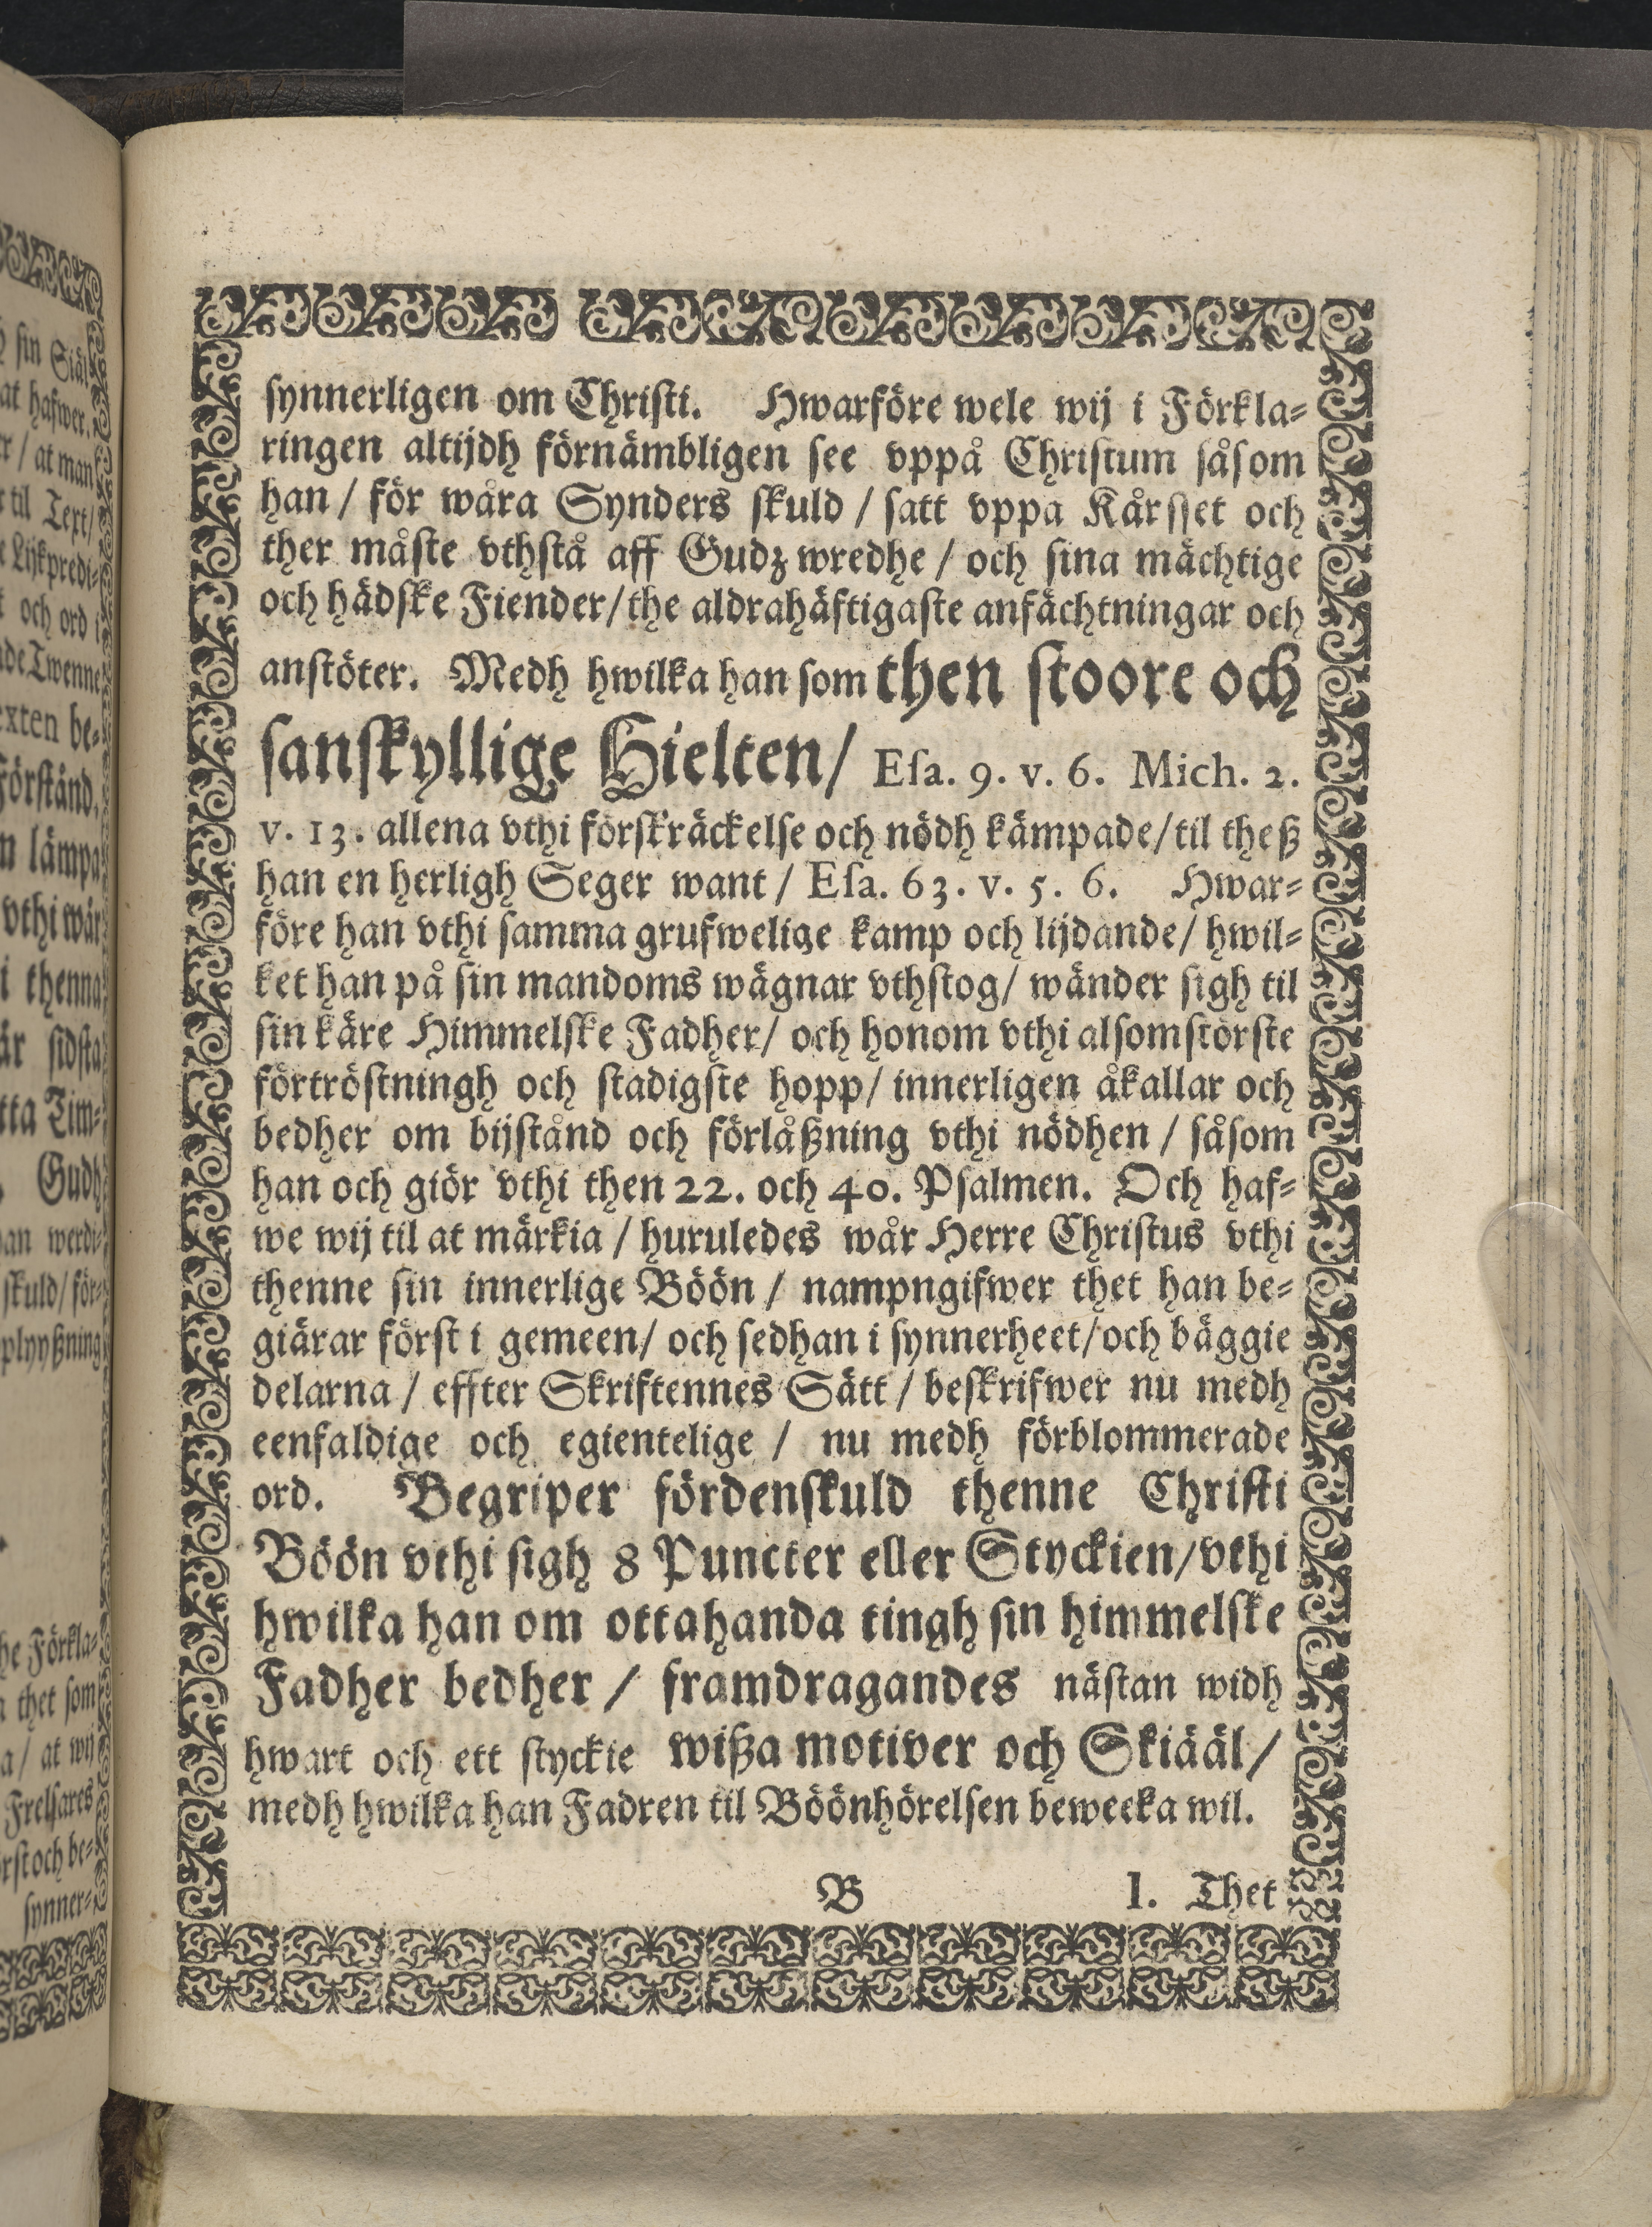 synnerligen om Christi. Hwarföre wele wij i Förkla-
ringen altijdh förnämbligen see vppå Christum såsom
han / för wåra Synders skuld / satt vppa Kårsset och
ther måste vthstå aff Gudz wredhe / och sina mächtige
och hädske Fiender/the aldrahäftigaste anfächtningar och
anstöter. Medh hwilka han som then stoore och
sanskyllige Hielten/ Esa. 9. v. 6. Mich. 2.
v. 13. allena vthi förskräckelse och nödh kämpade/til theß
han en herligh Seger want / Esa. 63. v. 5. 6. Hwar-
före han vthi samma grufwelige kamp och lijdande/ hwil-
ket han på sin mandoms wägnar vthstog/ wänder sigh til
sin käre Himmelske Fadher/ och honom vthi alsomstörste
förtröstningh och stadigste hopp/ innerligen åkallar och
bedher om bijstånd och förlåßning vthi nödhen / såsom
han och giör vthi then 22. och 40. Psalmen. Och haf-
we wij til at märkia / huruledes wår Herre Christus vthi
thenne sin innerlige Böön / nampngifwer thet han be-
giärar först i gemeen/ och sedhan i synnerheet/och bäggie
delarna / effter Skriftennes Sätt / beskrifwer nu medh
eenfaldige och egientelige / nu medh förblommerade
ord. Begriper fördenskuld thenne Christi
Böön vthi sigh 8 Puncter eller Styckien/vthi
hwilka han om ottahanda tingh sin himmelske
Fadher bedher / framdragandes nästan widh
hwart och ett styckie wißa motiver och Skiääl/
medh hwilka han Fadren til Böönhörelsen beweeka wil.
B I. Thet